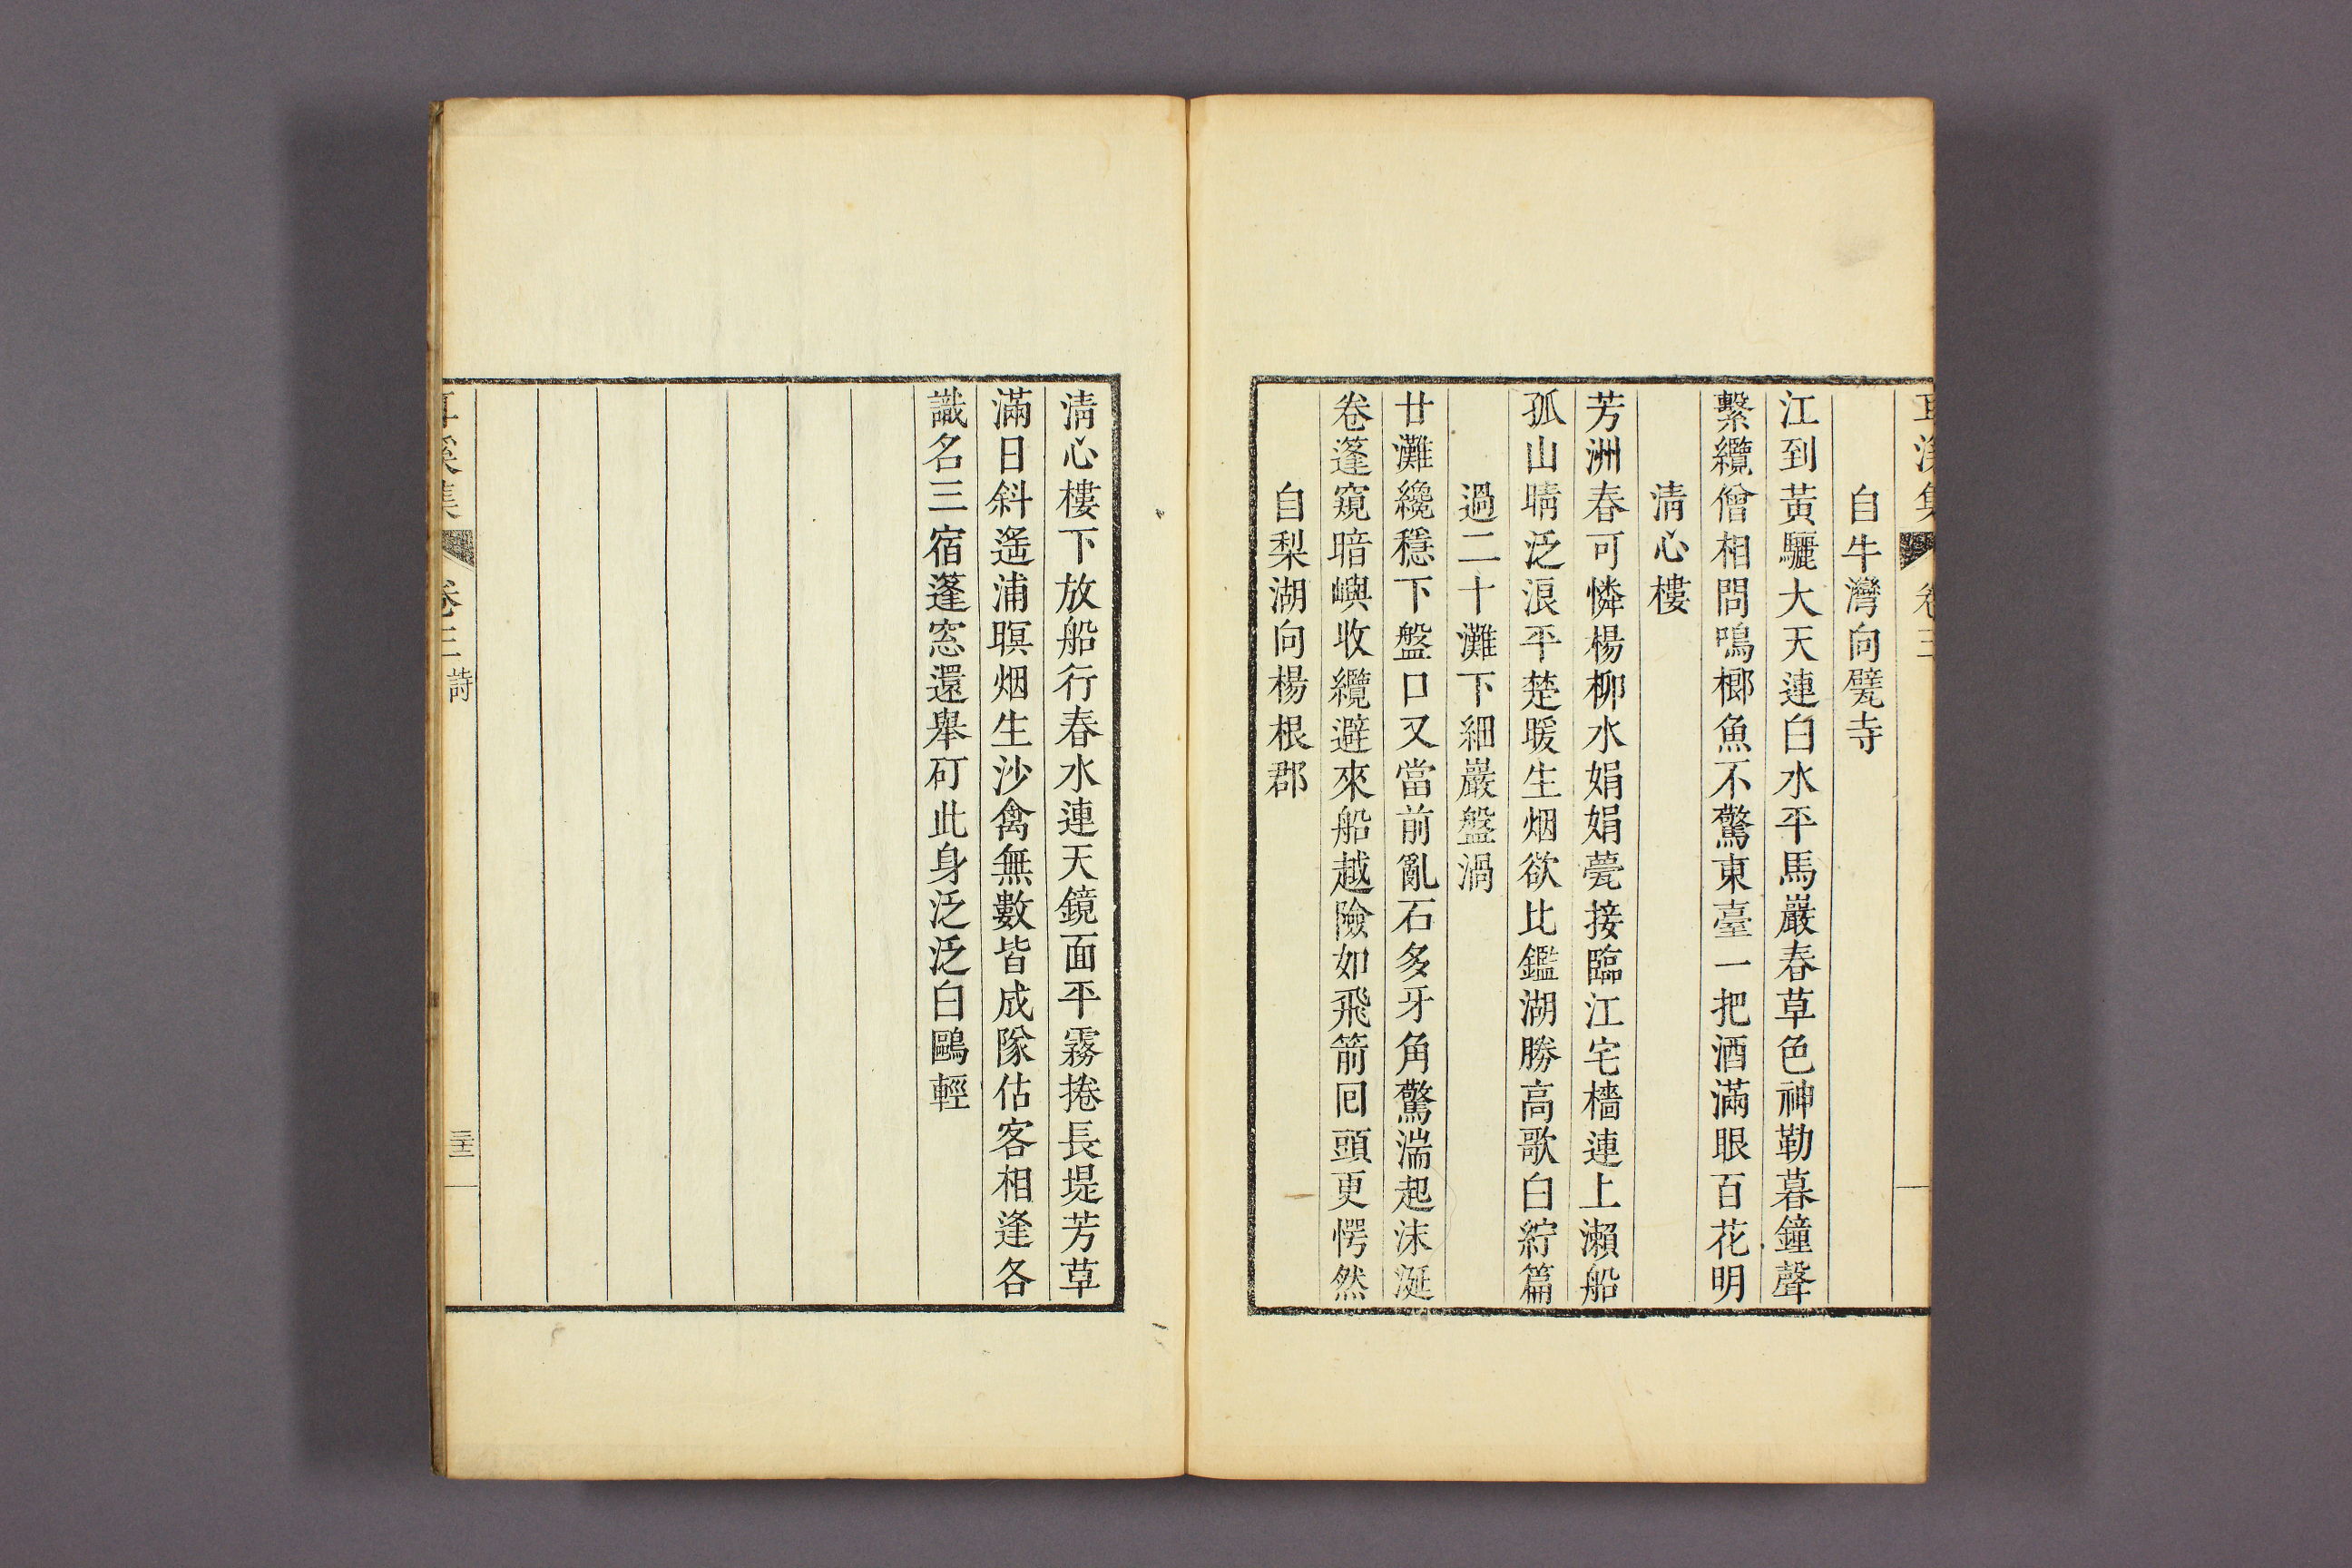 耳溪集 卷三
自牛灣向甓寺
江到黃驪大天連白水平馬巖春草色神勒暮鐘聲
繫纜僧相問鳴榔魚不驚東臺一把酒滿眼百花明
淸心樓
芳洲春可憐楊柳水娟娟甍接臨江宅檣連上瀨船
孤山晴泛浪平楚暖生烟欲比鑑湖勝高歌白紵篇
過二十灘下細巖盤渦
廿灘纔穩下盤口又當前亂石多牙角驚湍起沫涎
卷蓬窺暗嶼收纜避來船越險如飛箭回頭更愕然
自梨湖向楊根郡
淸心樓下放船行春水連天鏡面平霧捲長堤芳草
滿日斜遙浦暝烟生沙禽無數皆成隊估客相逢各
識名三宿蓬窓還擧矴此身泛泛白鷗輕
耳溪集 卷三 詩